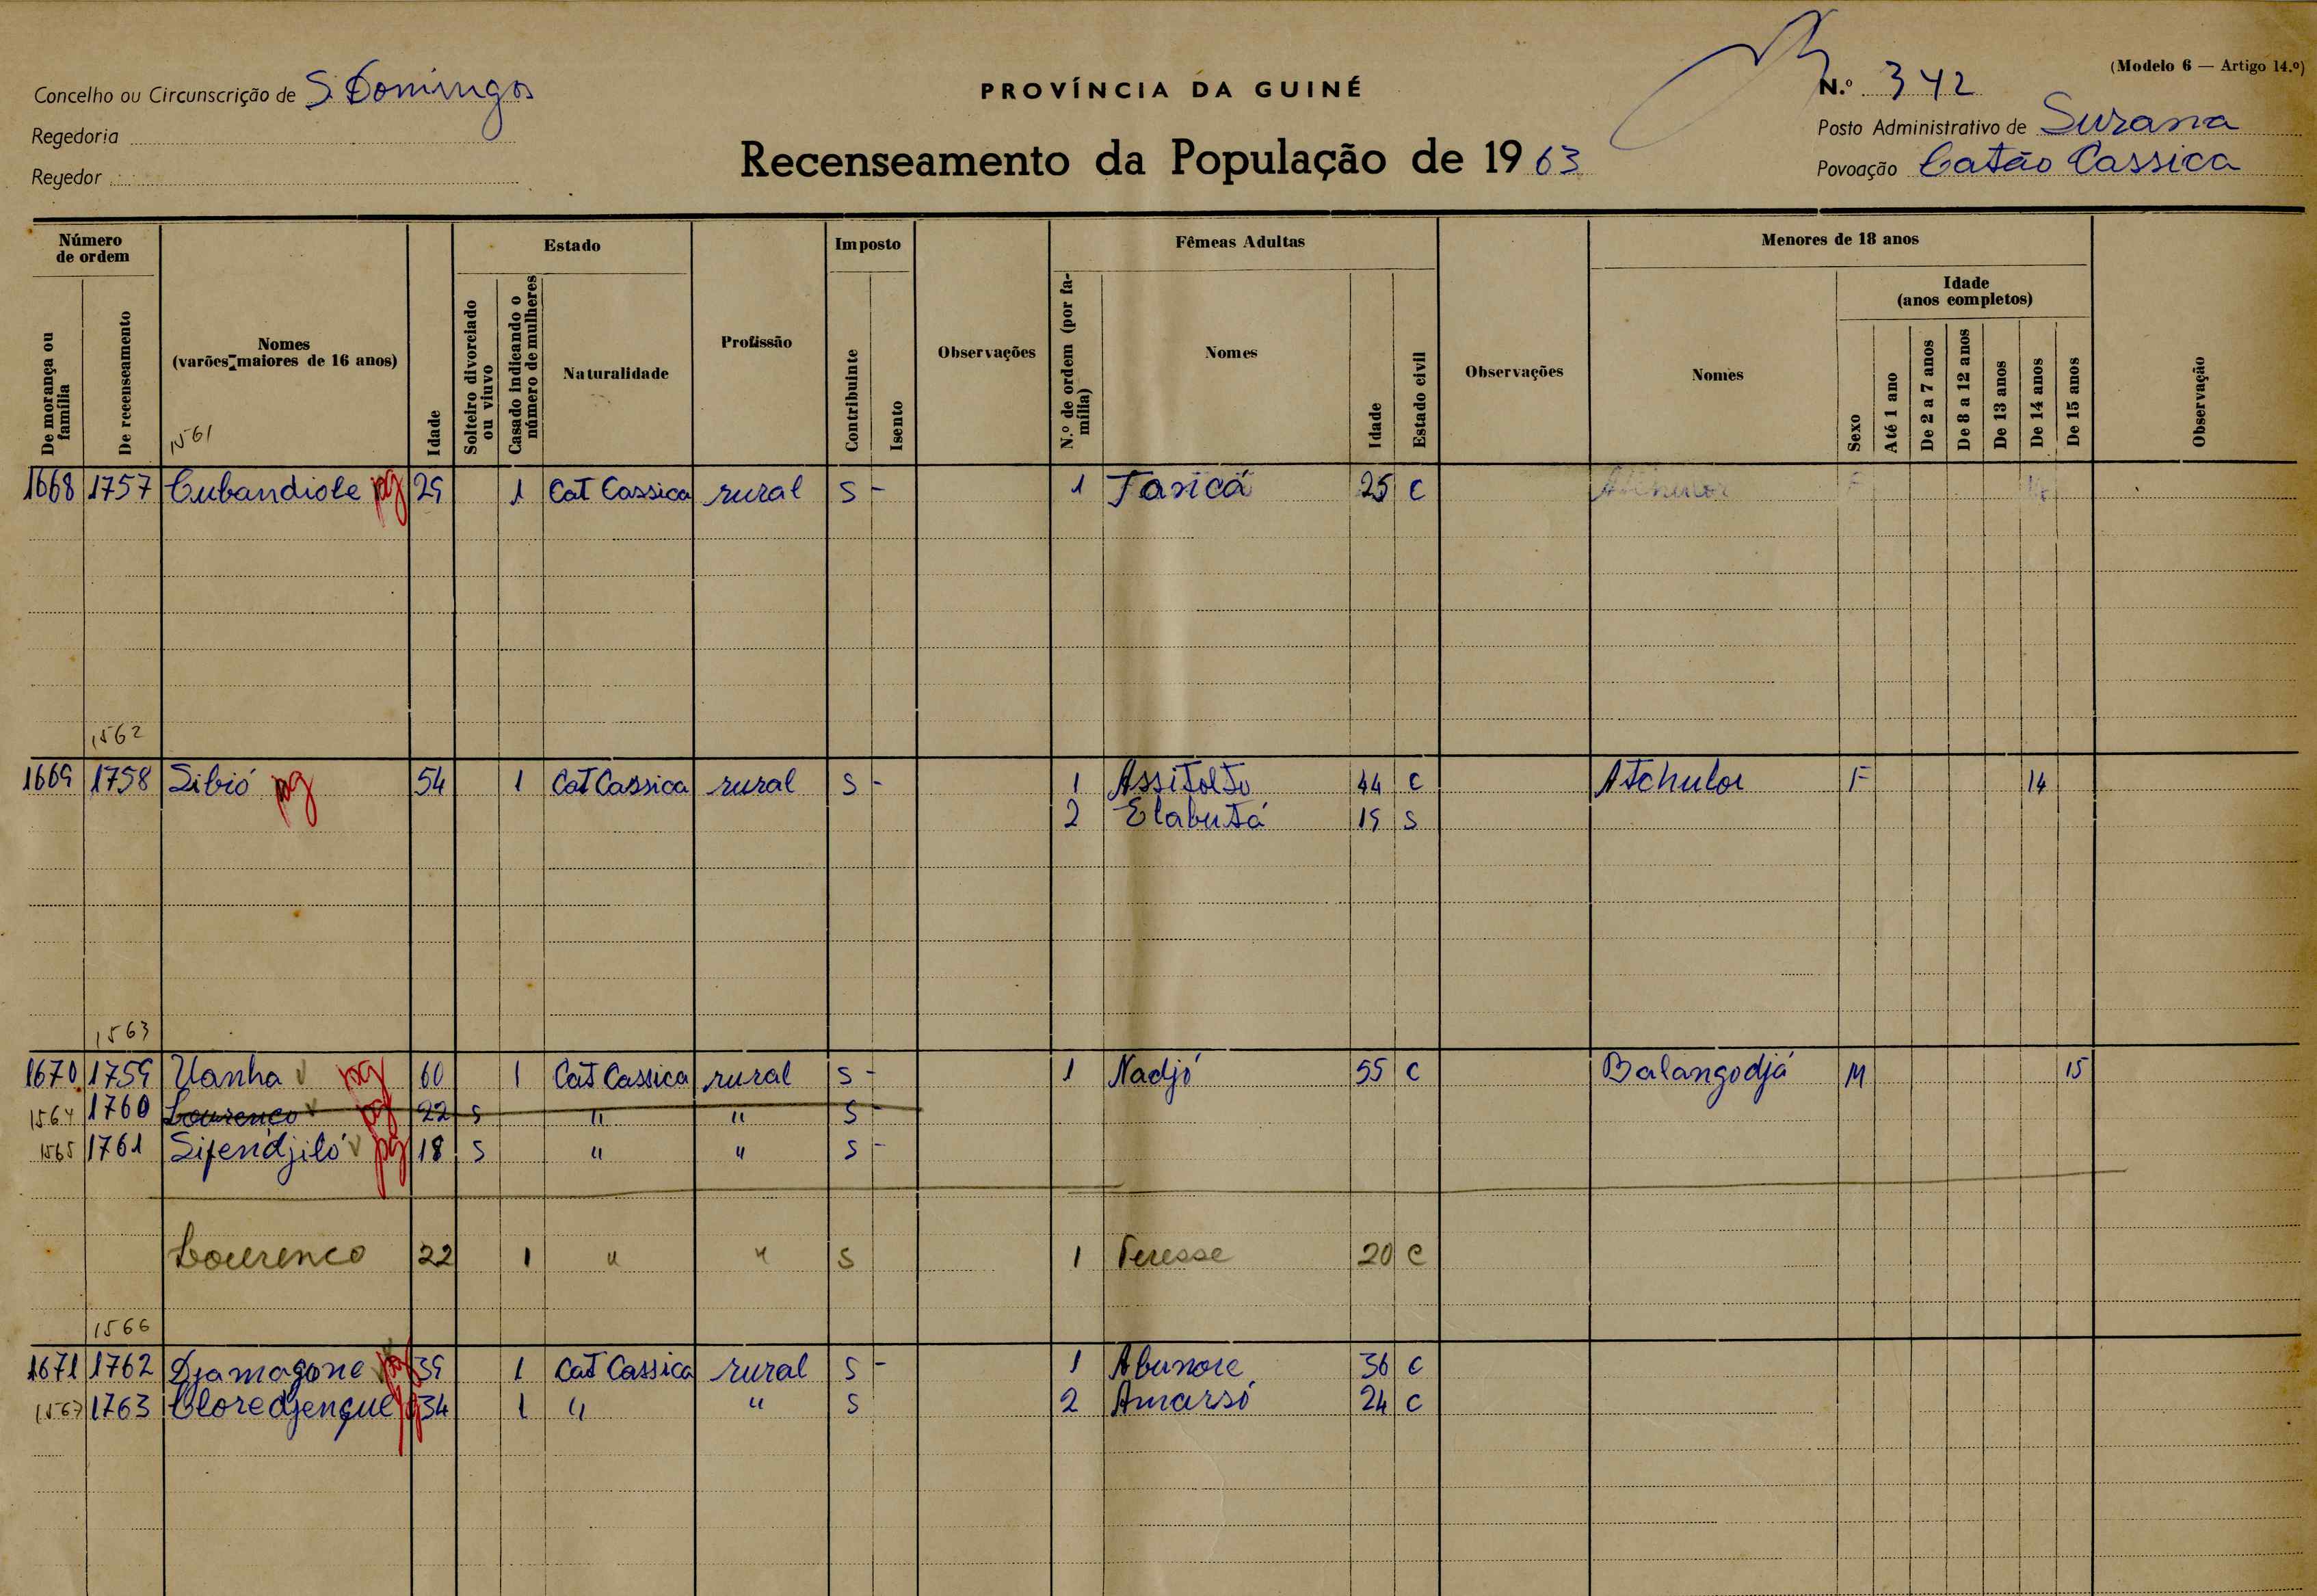 (Modelo 6 — Artigo 14.º)
Concelho ou Circunscrição de S. Domingos
PROVÍNCIA DA GUINÉ
N.º 342
Regedoria
Posto Administrativo de Surana
Regedor
Recenseamento da População de 1963
Povoação Catão Cassica
Número de ordem
De morança ou família
De recenseamento
Nomes
(varões maiores de 16 anos)
1561
Idade
Estado
Solteiro divorciado ou viuvo
Casado indicando o número de mulheres
Naturalidade
Profissão
Imposto
Contribuinte
Isento
Observações
Fêmeas Adultas
N.º de ordem (por família)
Nomes
Idade
Estado civil
Observações
Menores de 18 anos
Nomes
Sexo
Idade
(anos completos)
Até 1 ano
De 2 a 7 anos
De 8 a 12 anos
De 13 anos
De 14 anos
De 15 anos
Observação
1668 1757 Cubandiole pg 29 1 Cat Cassica rural S - 1 Tanicá 25 C
1562
1669 1758 Sibió pg 54 1 Cat Cassica rural S - 1 Assitolto 44 C Atchulor F 14
2 Elabutá 19 S
1563
1670 1759 Uanha pg 60 1 Cat Cassica rural S - 1 Nadjó 55 C Balangodjá M 15
1564 1760 Lourenco pg 22 S " " S -
1565 1761 Sifendjiló pg 18 S " " S -
Lourenco 22 1 " " S 1 Teresse 20 C
1566
1671 1762 Djamagone pg 39 1 Cat Cassica rural S - 1 Abunore 36 C
1567 1763 Cloredjenque pg 34 1 " " S 2 Amarsó 24 C